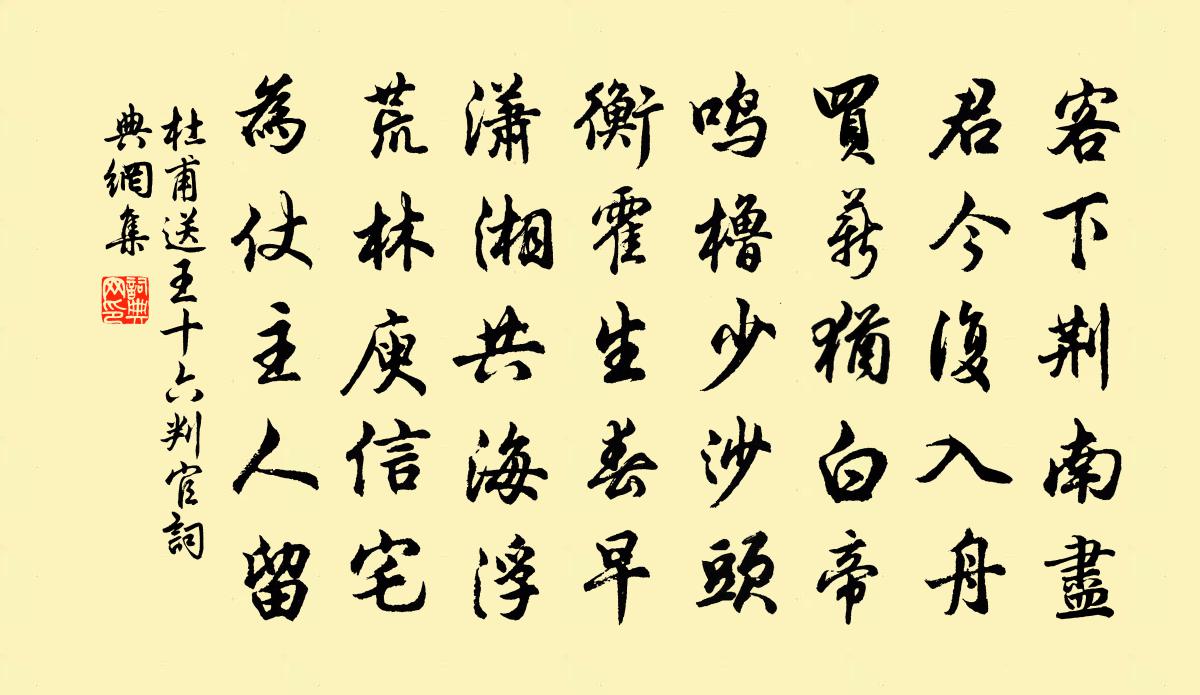 客下荆南盡
君今復入舟
買薪猶白帝
鳴櫓少沙頭
衡霍生春早
瀟湘共海浮
荒林庾信宅
為仗主人留
杜甫送王十六判官詞
典網集
詞典網印